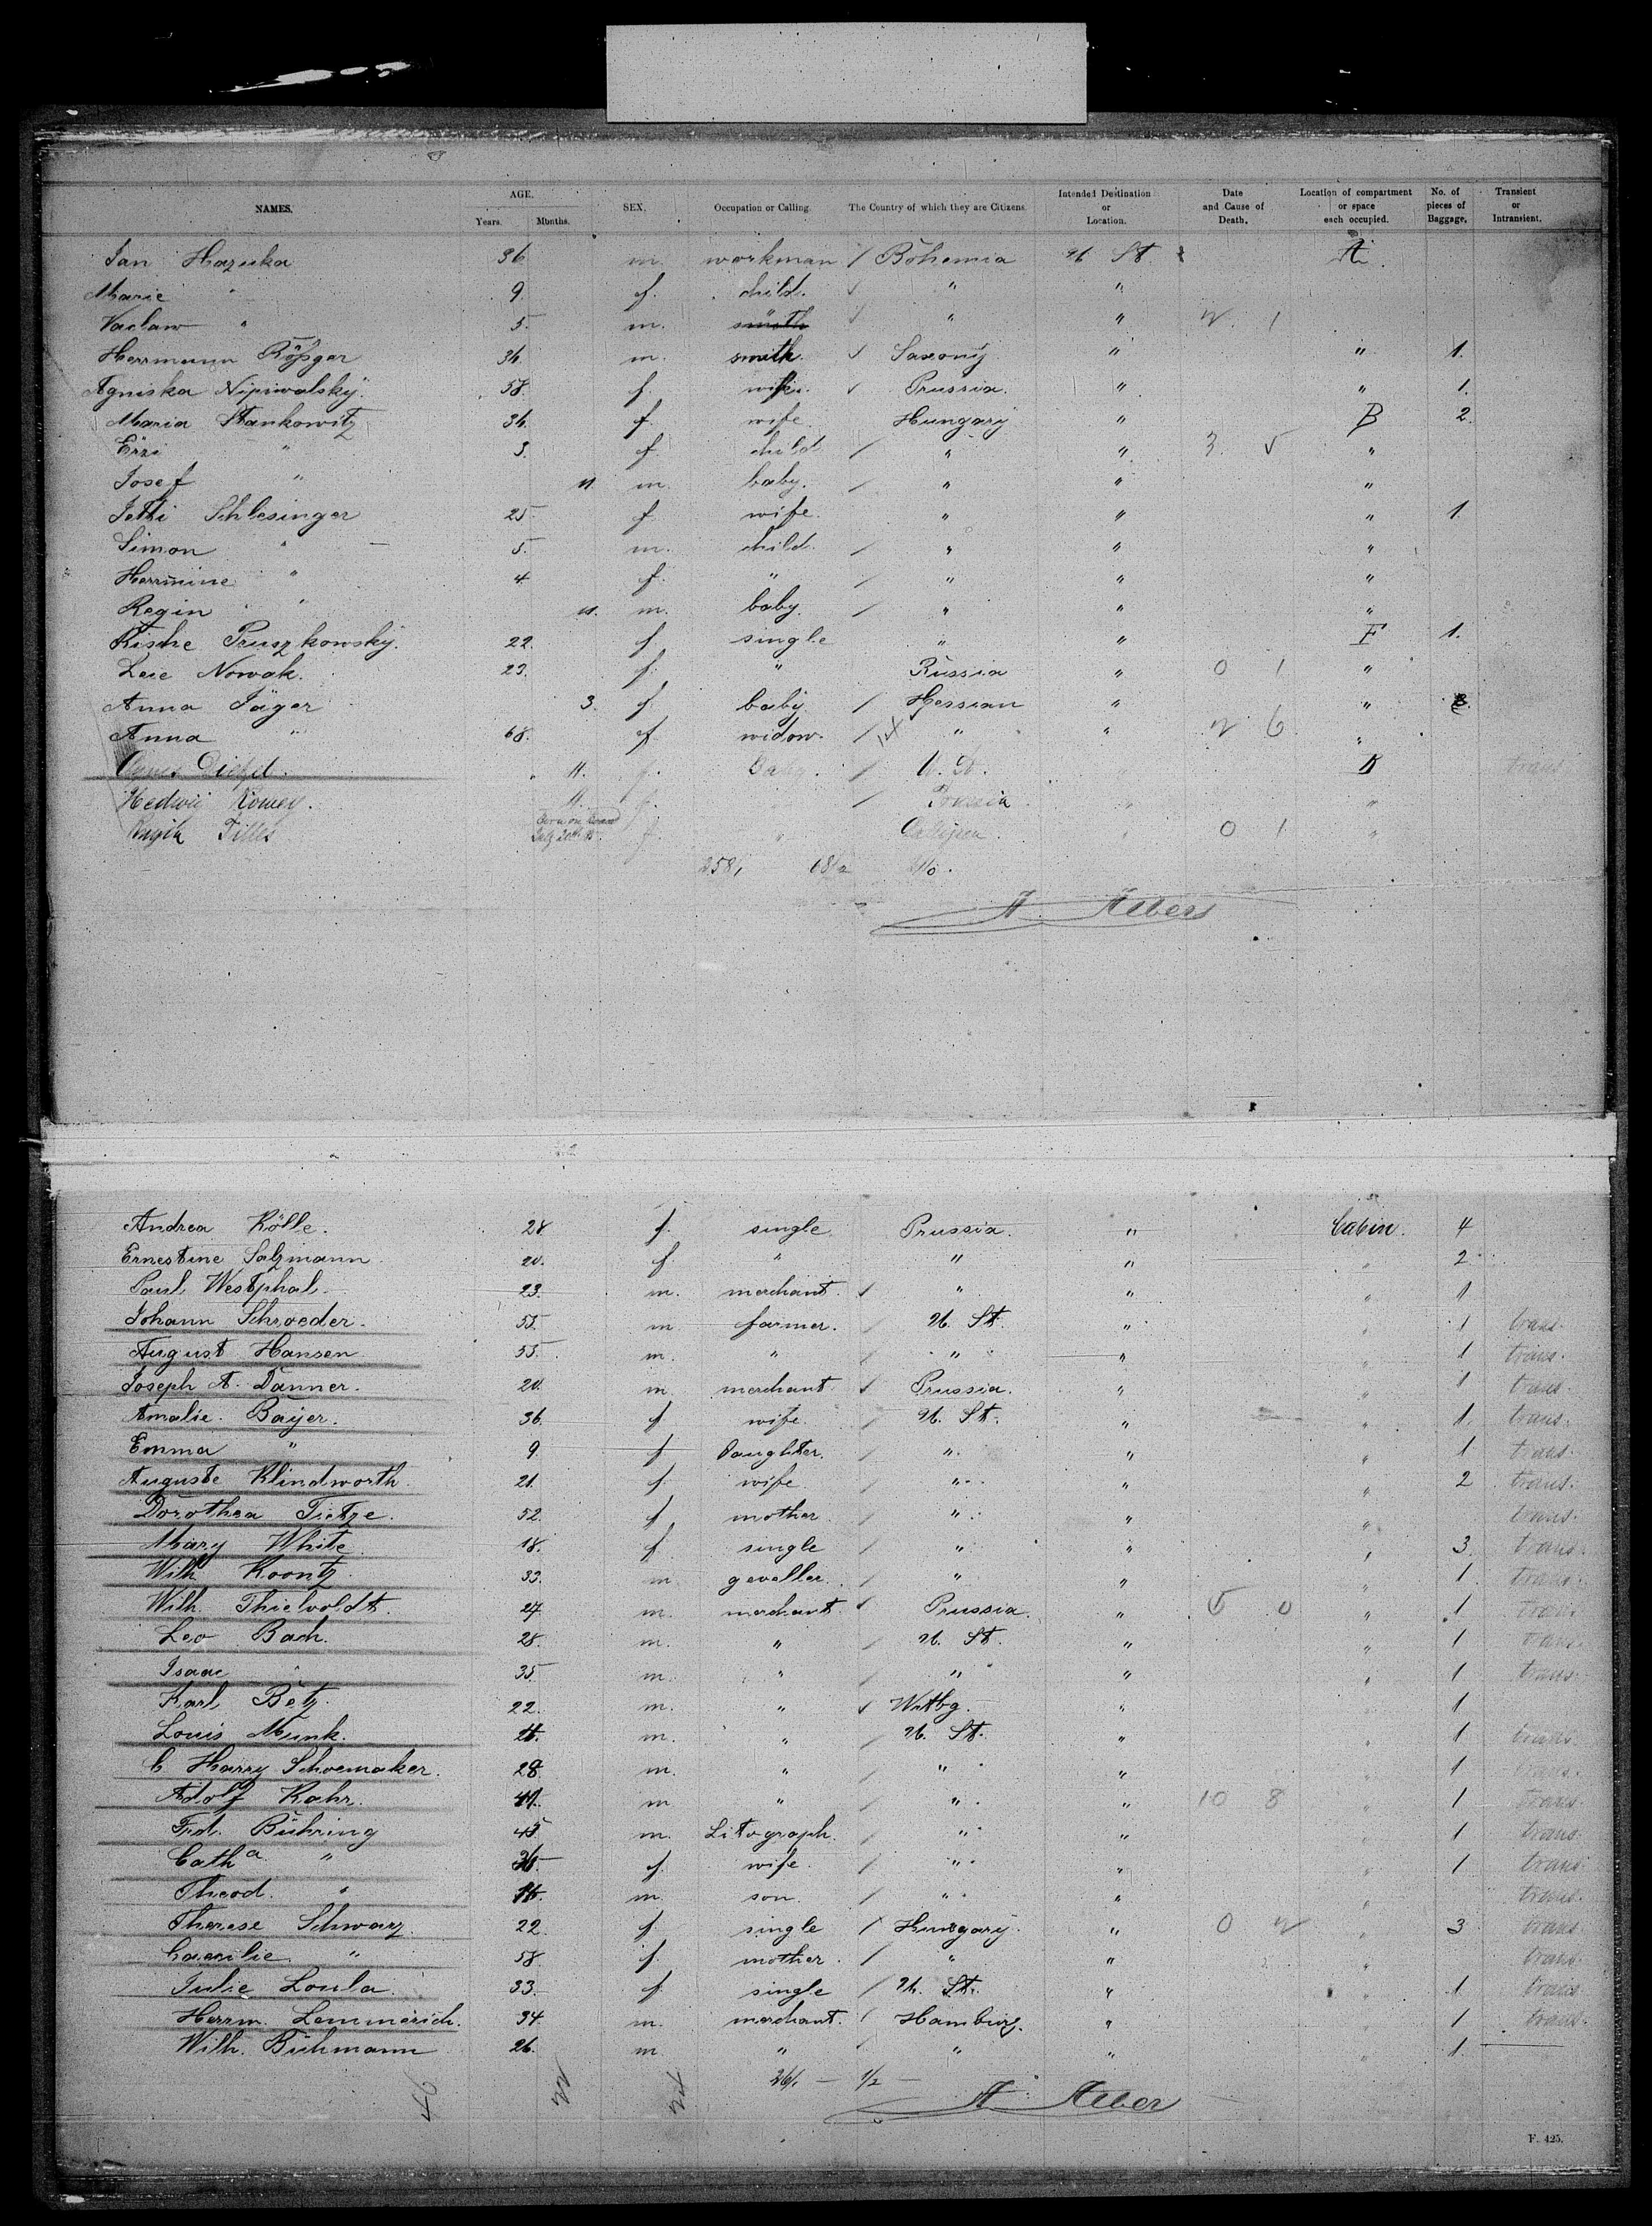 NAMES. AGE. Years. Months. SEX. Occupation or Calling. The Country of which they are Citizens. Intended Destination or Location. Date and Cause of Death. Location of compartment or space each occupied. No. of pieces of Baggage. Transient or Intransient.
Jan Hazuka 36 m. workman / Bohemia U St. A
Marie " 9 f. child. √ " "
Vaclaw " 5. m. smith √ " "
Herrmann Rößger 36 m. smith √ Saxony " " 1.
Agniska Nipiwalsky. 58. f. √ Prussia. " " 1.
Maria Stankowitz 36. f. wife. Hungary " B 2.
Erzi " 3. f. child / " " 3 5 "
Josef " 11 m. baby. / " " "
Jetti Schlesinger 25 f wife. " " " 1.
Simon " 5. m. child. / " " "
Herrmine " 4 f. " / " " "
Regin " 11. m. baby. / " " "
Rische Pruszkowsky. 22. f. single " " F 1.
Leie Nowak. 23. f. " Russia " 0 1 "
Anna Jäger 3. f. baby / Hessian " " 3.
Anna " 68. f. widow. / " " 6 "
Agnes Dietzel. 11. f. Baby. / U. St. " B trans
Hedwig 11. f. / Prussia " "
Tilles Born on Board July 20th f. " " 0 1 "
258,
A. Albers
Andrea Kölle. 28 f. single Prussia. " Cabin. 4
Ernestine Salzmann 20. f " " " " 2
Paul Westphal. 23. m. merchant. √ " " " 1
Johann Schroeder. 55. m farmer. / U. St. " " 1 trans.
August Hansen 55. m. " / " " " 1 trans.
Joseph A. Danner. 20. m merchant √ Prussia. " " 1 trans.
Amalie Bayer. 36. f wife. / U. St. " " 1. trans.
Emma " 9 f Daughter. / " " " 1 trans.
Auguste Klindworth. 21. f. wife. / " " " 2 trans.
Dorothea Tietze. 52. f mother / " " " trans.
Mary White. 18. f single / " " " 3 trans.
Wilh Koontz. 33. m geveller. / " " " 1. trans.
Wilh. Thielvoldt. 27 m. merchant √ Prussia. " 5 0 " 1 trans.
Leo Bach. 28. m. " / U. St. " " 1 trans.
Isaac " 35 m. " / " " " 1 trans.
Karl Betz. 22. m. " √ Wrtbg. " " 1
Louis Munk. m. " / U. St. " " 1 trans.
C Harry Schoemaker. 28. m. " / " " " 1 trans.
Adolf Kahr. m " / " " 10 8 " 1 trans.
Frd. Bühring 45 m. Litograph. / " " " 1 trans.
Catha " f. wife. / " " " 1 trans.
Theod. " m. son. / " " " trans.
Therese Schwarz. 22. f single / Hungary. " 0 " 3 trans
Caecilie " 58. f. mother. / " " " trans.
Julie Loula 33. f. single / U. St. " " 1 trans
Herrm. Lemmerich. 34. m. merchant. / Hamburg. " " 1 trans.
Wilh. Bühmann 26. m " / " " " 1.
26/. — 1/2 —
A. Albers
F. 425.